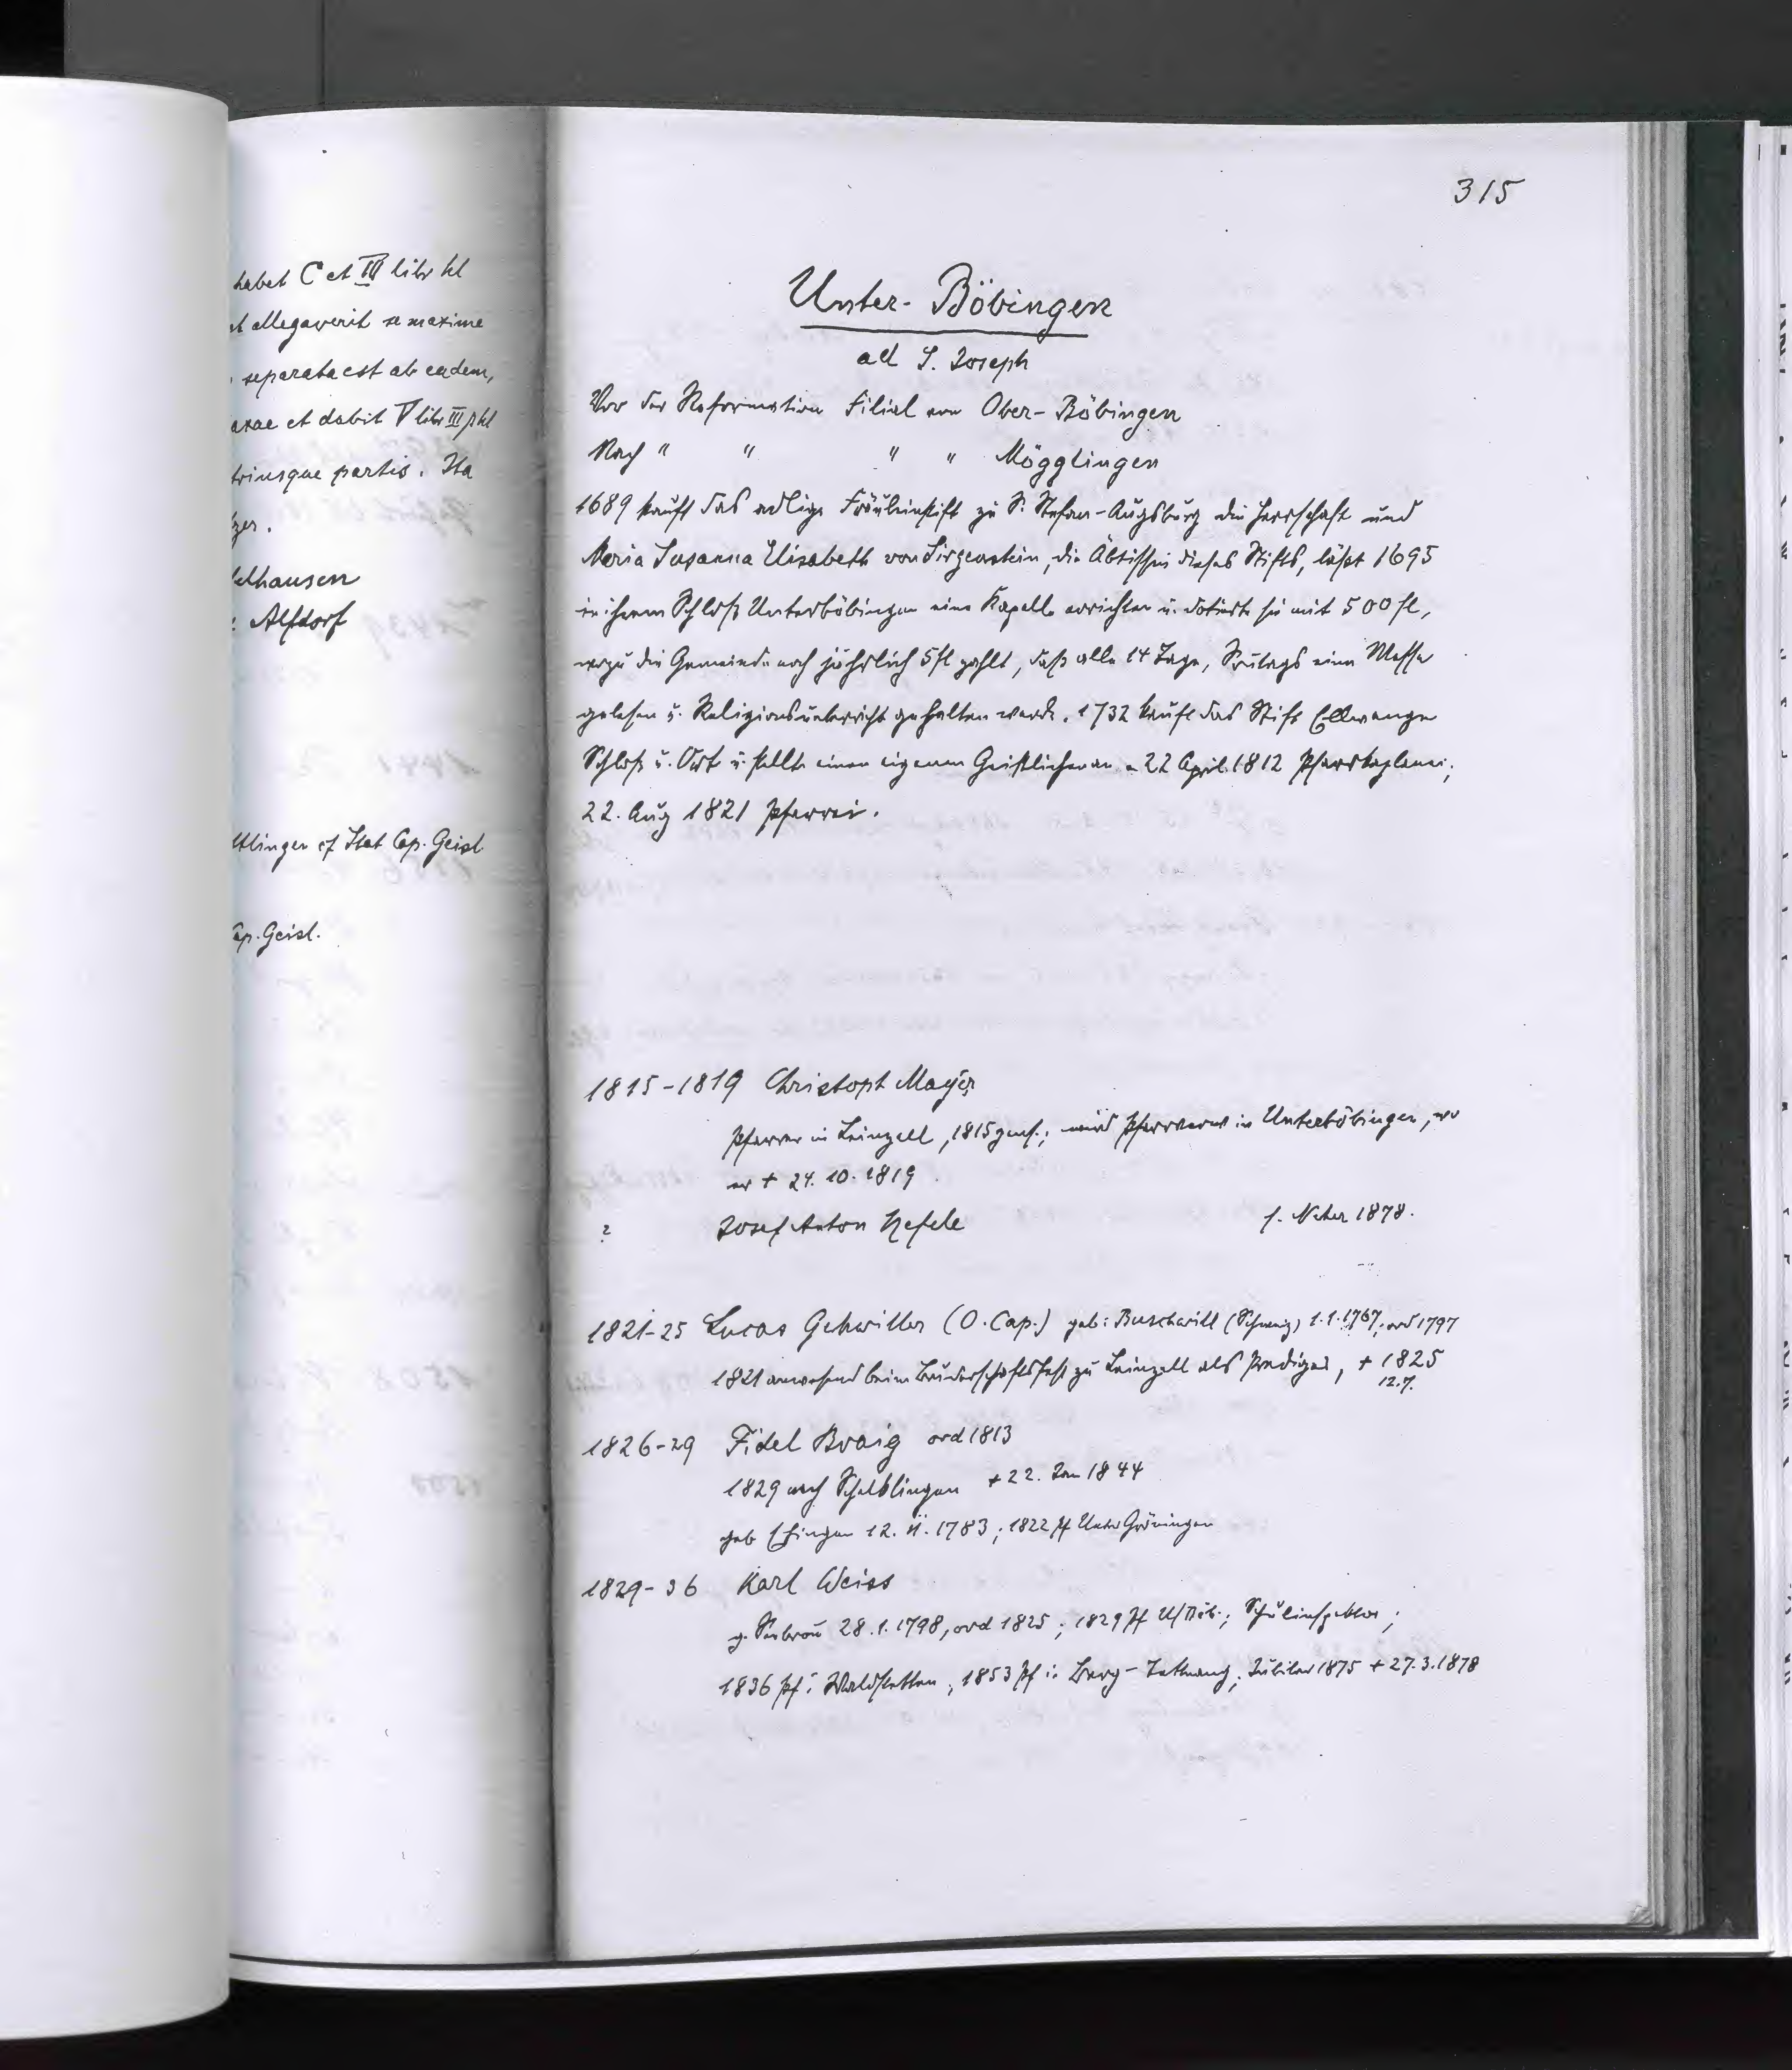 habet C et III libr hl
allegaverit se maxime
separata est ab eadem,
et dabit V libr III ß hl
partis. Ita
Alfdorf
cf Stat Cap. Geisl
Cap. Geisl.
315
Unter-Böbingen
ad S. Joseph
Vor der Reformation Filial von Ober-Böbingen
Nach " " " " Mögglingen
1689 kauft das adlige Fräuleinstift zu S. Stefan-Augsburg die Herrschaft und
Maria Susanna Elisabeth von Sirgenstein, die Äbtissin dieses Stifts, läßt 1695
in ihrem Schloß Unterböbingen eine Kapelle errichten u. dotiert sie mit 500 fl,
wozu die Gemeinde noch jährlich 5 fl zahlt, daß alle 14 Tage, Sontags eine Messe
gelesen u. Religionsunterricht gehalten werde. 1732 kauft das Stift Ellwangen
Schloß u. Ort u. stellte einen eigenen Geistlichen an. 22 April 1812 Pfarrkaplanei;
22. Aug 1821 Pfarrei.
1815-1819 Christoph Mayer
Pfarrer in Leinzell, 1815 ; wird Pfarrverw in Unterböbingen, wo
er + 24. 10. 1819
? Josef Anton Hefele f. Neher 1878.
1821-25 Lucas Gehwiller (O. Cap.) geb: Buschwill (Schweiz) 1.1.1767, ord 1797
1821 anwesend beim Bruderschaftsfest zu Leinzell als Prediger, + 1825
12.7.
1826-29 Fidel Braig ord 1813
1829 nach Schelklingen + 22. Jan 1844
geb Ehingen 12. 11. 1783; 1822 Pf Unter Gröningen
1829-36 Karl Weiss
g. 28.1.1798, ord 1825; 1829 Pf U/Böb.; Schulinspektor;
1836 Pf: Waldstetten, 1853 Pf in Berg-Tettnang; Jubilar 1875 + 27.3.1878